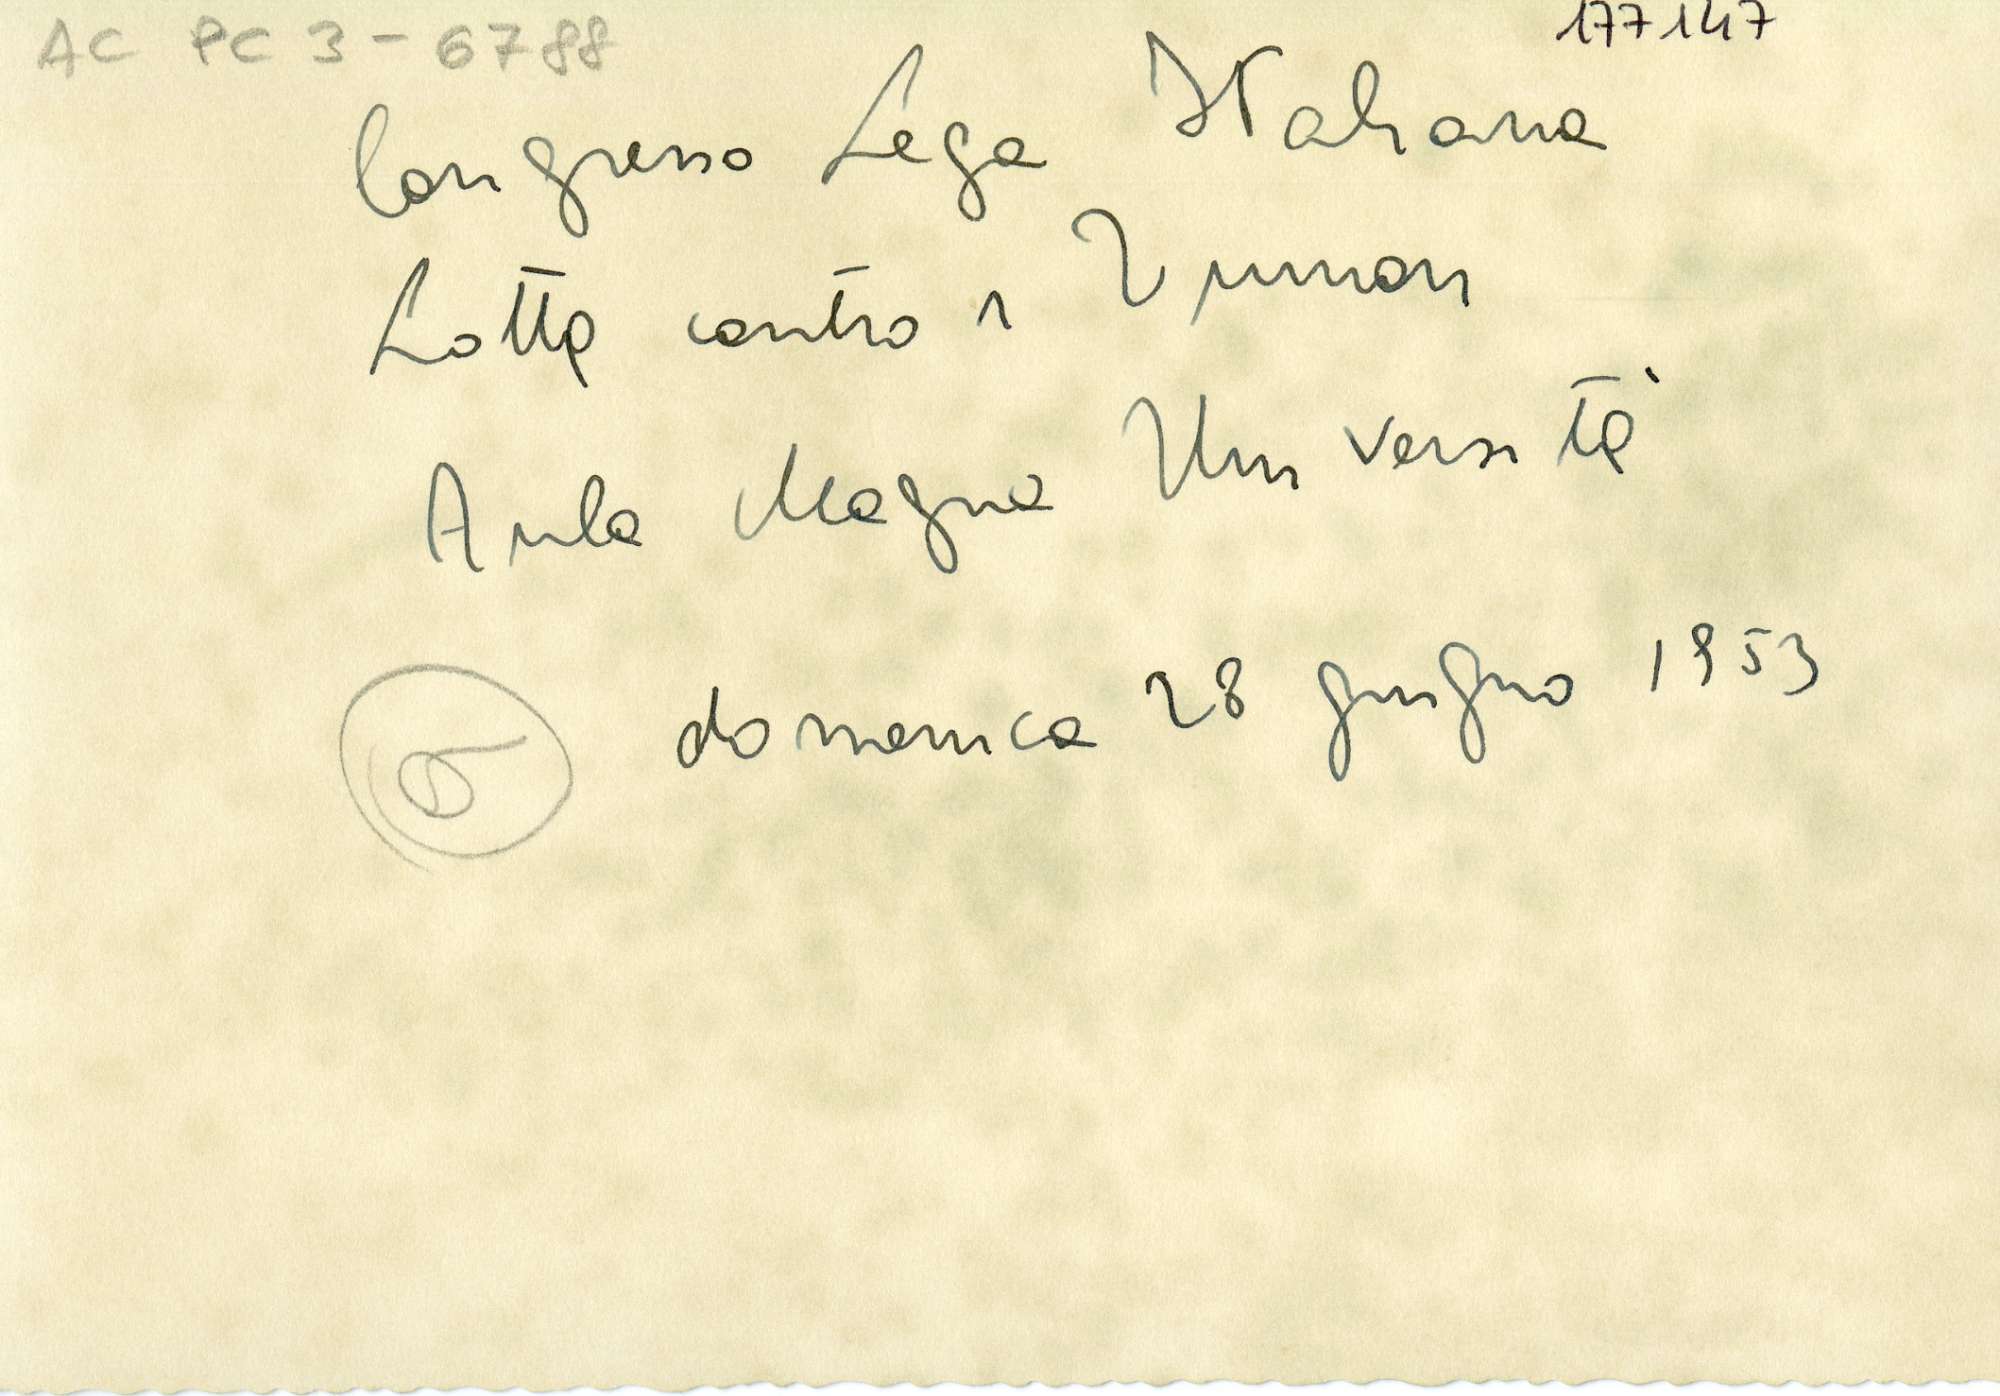 AC PC 3-6788
177147
Congresso Lega Italiana
Lotta contro i Tumori
Aula Magna Università
domenica 28 giugno 1953